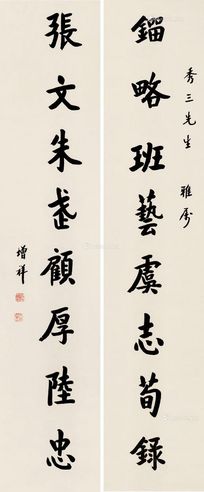 秀三先生 雅属
鎦略班藝虞志荀錄
張文朱武顧厚陸忠
增祥